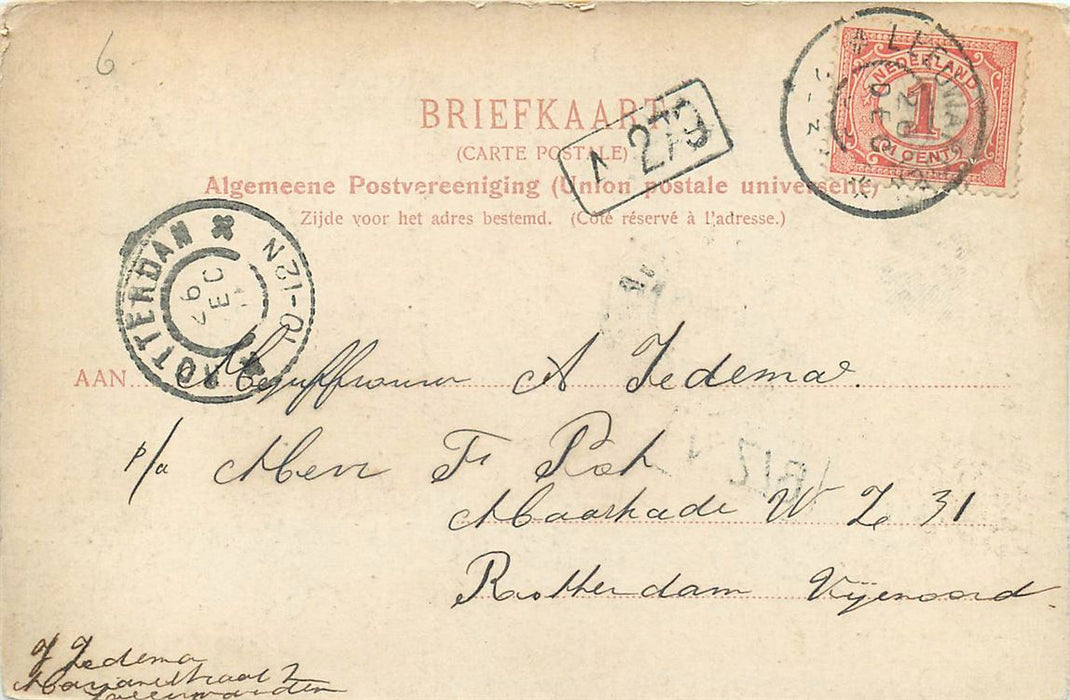 6
BRIEFKAART
(CARTE POSTALE)
Algemeene Postvereeniging (Union postale universelle)
Zijde voor het adres bestemd. (Côté réservé à l'adresse.)
A 273
NEDERLAND
1
CENT
DEC
ROTTERDAM
DEC
10-12N
AAN Mejuffrouw A Jedema.
p/a Heer F
Maaskade W Z 31
Rotterdam Fijenoord
J Jedema
Leeuwarden